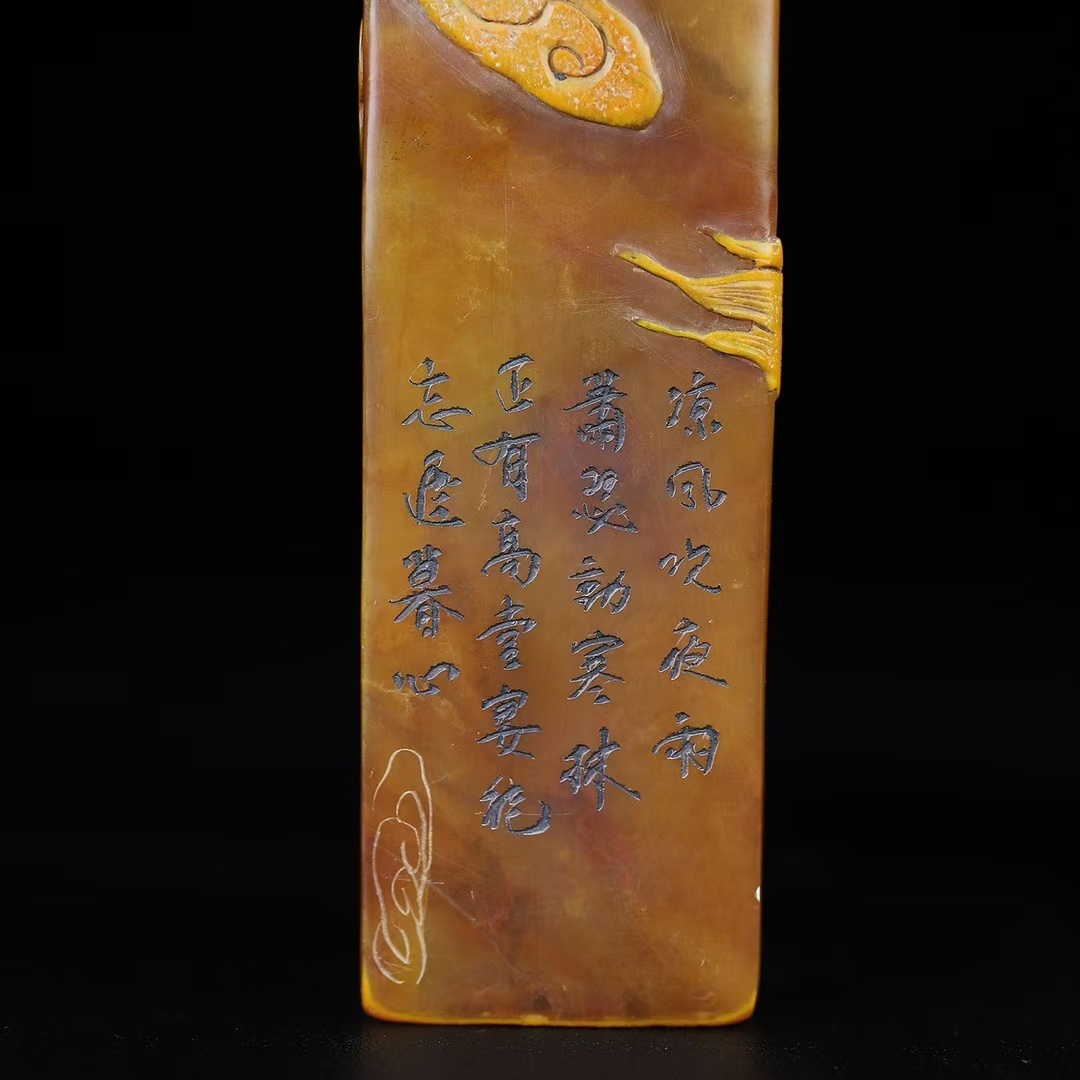 凉风吹夜雨
蕭瑟動寒林
正有高堂宴能
忘遲暮心